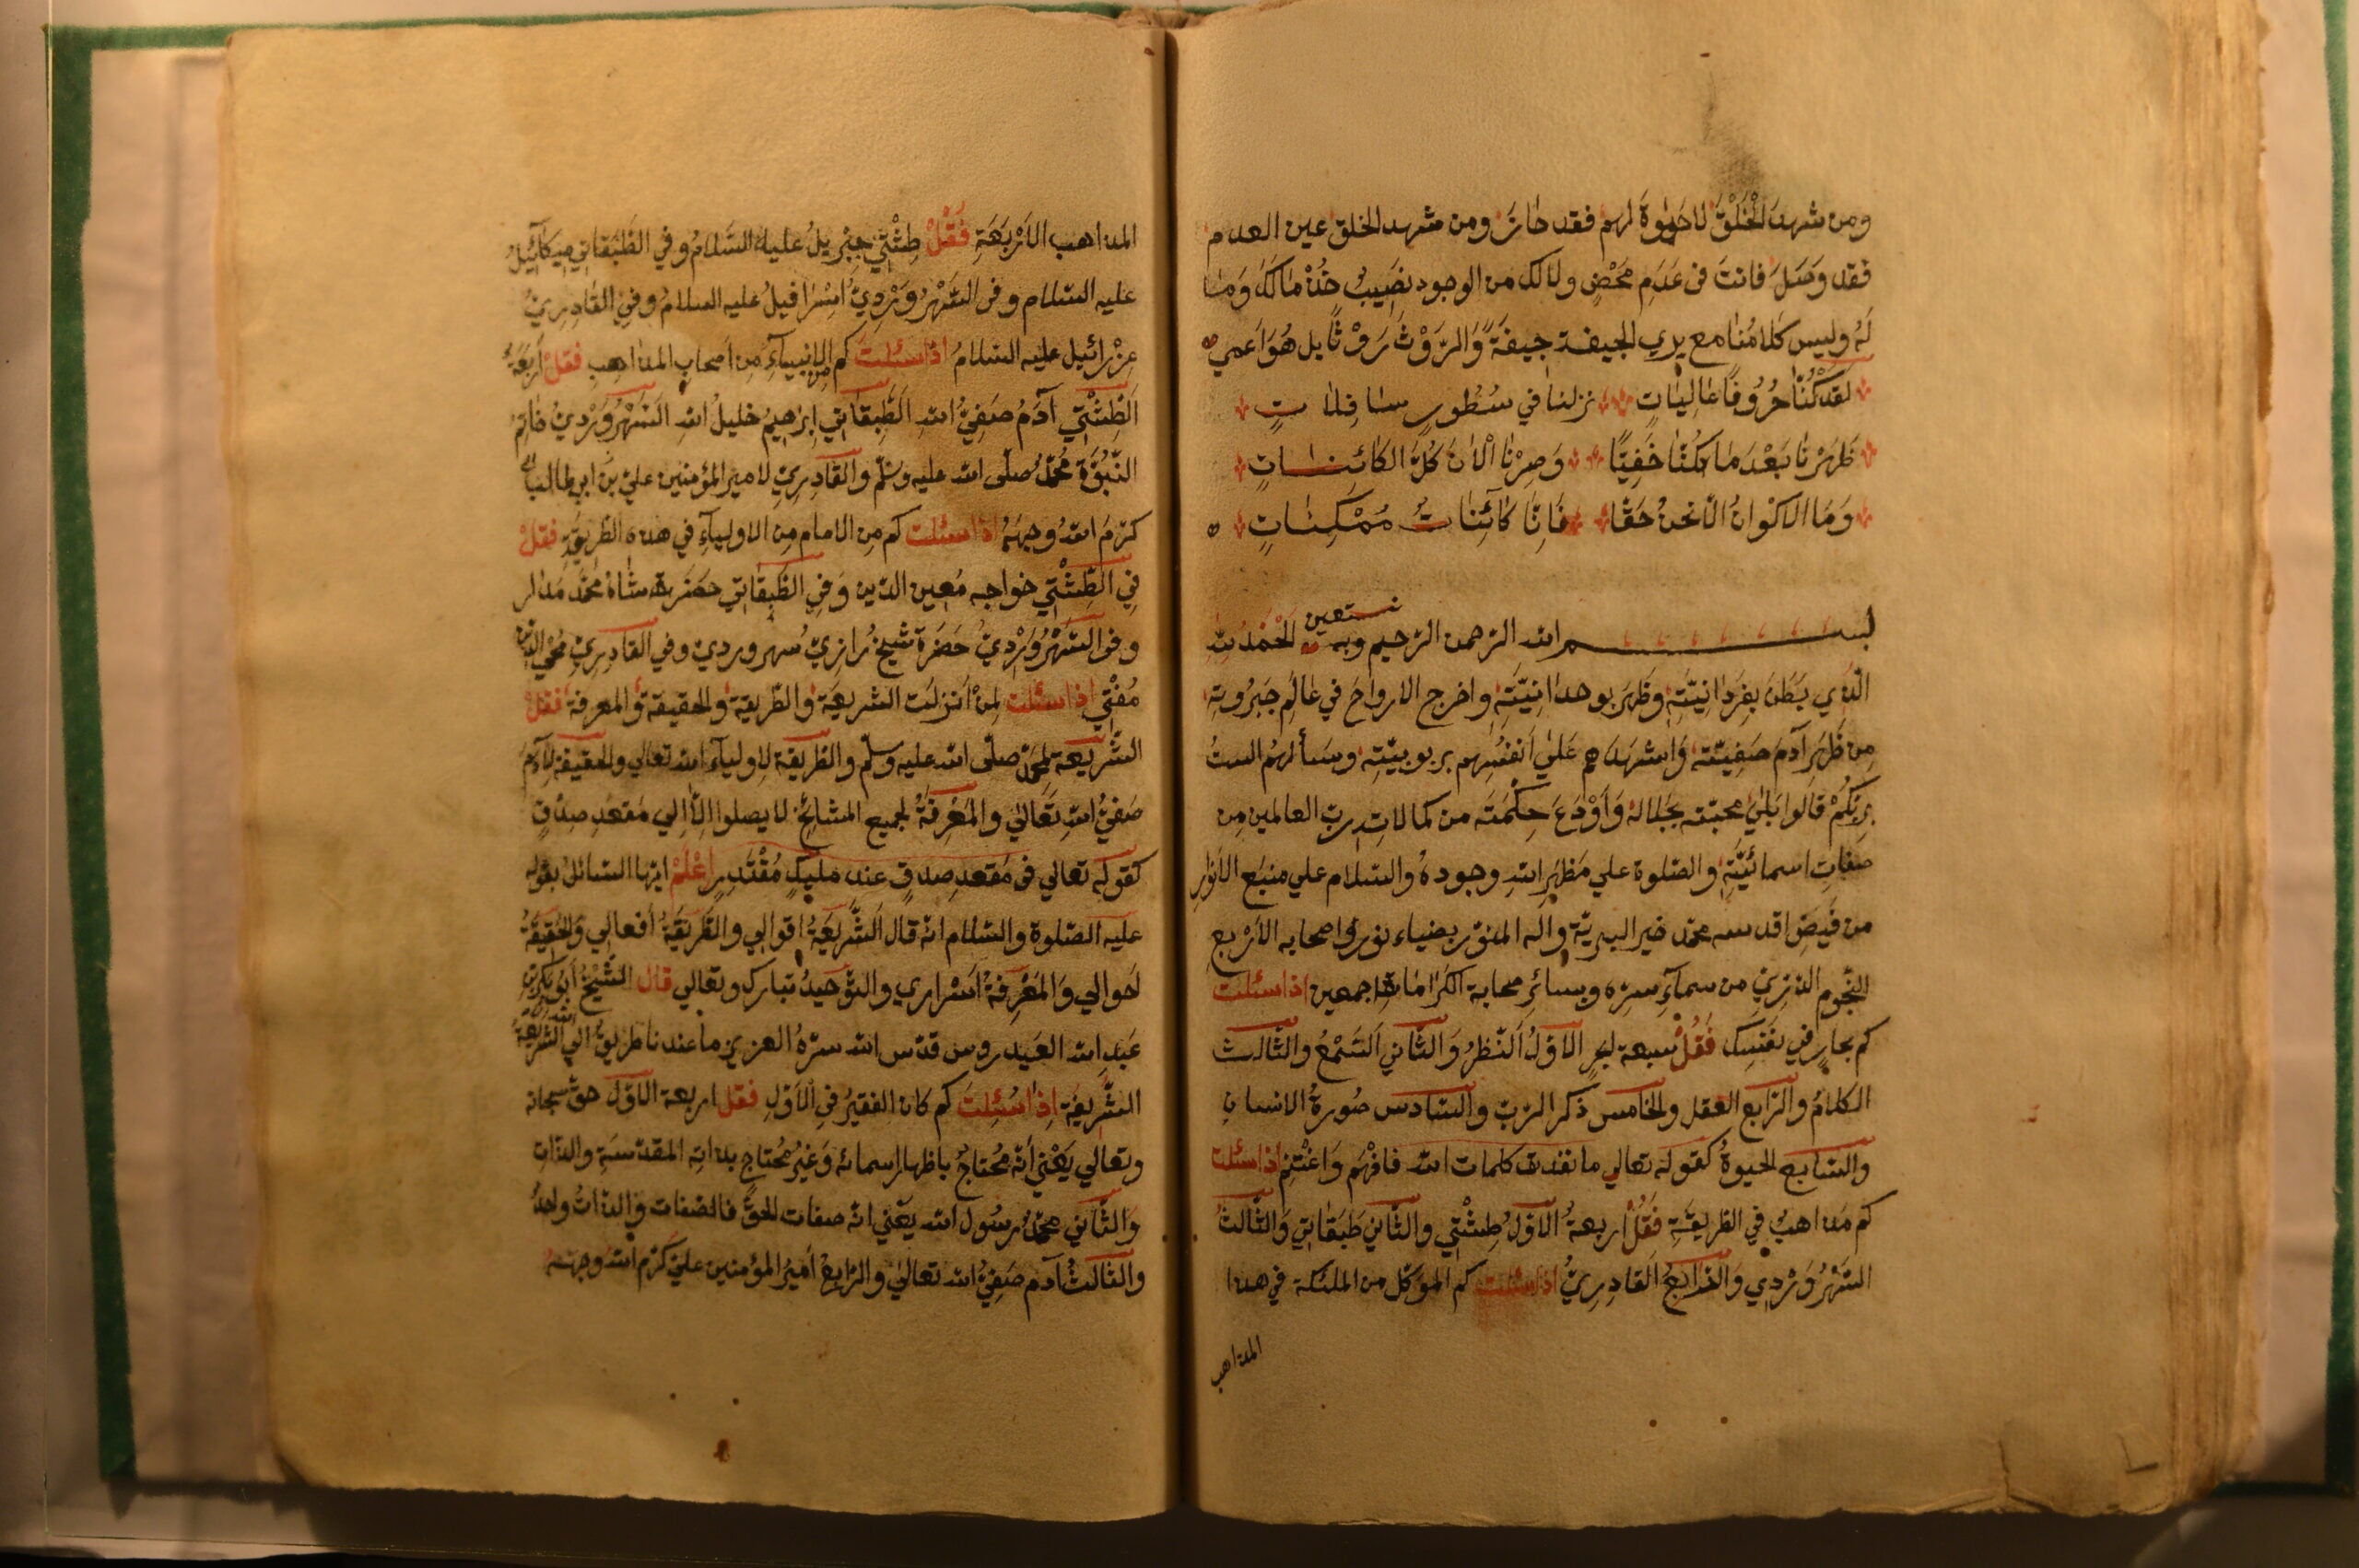 ومن شهدَ الْخَلْقَ لا حَيٰوةَ لهم فقد حَازَ ومن شهد الخلق عين العدم
فقد وَصَلَ فانتَ فى عَدَمٍ مَحْضٍ ولا لك من الوجود نَصِيبٌ خُذْ مَالَكَ وَمَا
لَهُ وليس كَلَامُنَا مع يري الجيفة جِيفَةً وَالرَّوْثَ رَوْثًا بل هُوَ اَعمي
لَقَدْ كُنَّا حُرُوفًا عَالِيَاتٍ نزلنا في سُطُورٍ سافِلاتٍ
ظَهَرْنَا بَعْدَ مَا كُنَّا خَفِيًّا وَصِرْنَا اْلاٰنَ كُلَّ الكَائِنَاتٍ
وَمَا الاَكْوَانُ الَّا نحنُ حَقًّا فَاِنَّا كَائِنَاتٌ مُمْكِنَاتٍ
بسم الله الرّحمن الرّحيم وبه نستعين اَلْحَمْدُ لِلّٰهِ
الَّذي بَطَنَ بِفَرْدَانِيَّتِهِ وَظَهَرَ بوحدَانِيَّتِهِ واخرج الارواحَ في عَالَمِ جَبَرُوتِهِ
مِن ظَهَرِ آدَمَ صَفِيّتِه وَاشهَدَهم عَلىٰ اَنفُسِهِم بربوبيّتِهِ وسَألهُم الستُ
بِرَبِّكُمْ قالوا بَلٰي محبّته بجَلاله وَاَوْدَعَ حِكْمَتَه من كمالات ربّ العالمين مِن
صفاتِ اسمائيَّتِهِ والصّلوة علي مَظهَرِ اللهِ وجوده والسّلام علي منبَع الاَنوارِ
من فَيضِ اقدسه محمّد خير البريّة واله المنوّر بضياء نوره واصحابه الاَرْبع
النّجوم من سماءِ سرّه وبسائرِ صحابة الكَرَامَات اجمعين اذا سئلت
كم بحارٍ في نفسِك فَقُلْ سبعة ابحرٍ الاوّلُ اَلنّظرُ وَالثّاني اَلسّمْعُ والثّالث
الكلامُ والرّابع العقل والخامس ذكر الرّبّ والسّادس صُورةُ الانسان
والسّابع الحيوةُ كقوله تعالي ما نفدت كلمات الله فافهَم وَاغْتنِم اذا سئلت
كم مَذاهبٌ فِي الطّريقَةِ فَقُلْ اربعةُ الاوّلُ طِشْتِي والثّاني طَبَقاتِي وَالثّالثُ
السّهْرُوَرْدِي وَالرّابعُ القادِرِيُّ اذا سئلت كم المؤكّل من الملئكة في هذا
المذاهب
المذاهب الاَرْبَعَةِ فَقُلْ طِشْتِي جِبْرِيلُ عليه السَّلامُ وفي الطَّبَقاتِي مِيكَآئِيلُ
عليه السّلام وفى السّهْرُوَرْدِيّ اِسْرَافيلُ عليه السلامُ وفِي القَادِرِيّ
عِزْرائيل عليه السّلامُ اذا سئلت كم من الانبياءِ مِن اَصحابِ المذاهِبِ فقلْ اَربَعَةٌ
اَلطِشْتِي آدَمُ صَفِيُّ اللهِ اَلطَّبقَاتِي اِبرٰهِيمُ خليلُ اللهِ اَلسَّهْرُوَرْدِيُّ خاتِمُ
النّبُوَّةِ مُحمَّدٌ صلّى الله عليه وسَلّم والقَادِرِيّ لامير المؤمنين عليّ بن ابي طالب
كرّمَ اللهُ وجهَهُ اذا سئلت كم مِن الامام مِن الاولياءِ في هذه الطّريقَةِ فقلْ
فِي الطِّشْتِي خواجه مُعين الدّين وَفِي الطَّبقَاتِي حضرة شاهْ محمّد مَدَار
وفى السّهْرُوَرْدِيّ حَضَرَة شيخ رازيّ سهرورديّ وفي القادِرِيّ مُحْي الدّين
مُفْتِي اذا سئلت لِمَنْ اَنزلَت الشريعَة والطّريقة والحقيقة والمعرفة فقلْ
الشّرِيعَة لمحمّد صلّى الله عليه وسلّم والطّريقَة لاولياءِ الله تعالي والحقيقة لآدم
صَفيُّ اللهِ تَعَالٰي والمَعْرِفَةُ لجميع المشايخ لا يصلوا الاّ اِلي مَقعَدِ صِدْقٍ
كقوله تعالي فى مَقعَدِ صِدقٍ عند مليكٍ مُقْتَدِرٍ اِعْلَمْ ايّها السّائلُ بقوله
عليه الصّلوة والسّلام انّه قال اَلشَّرِيعَةُ اقوالِي والطَّرِيقَةُ اَفعالِي وَالحَقِيقَةُ
اَحوالي وَالمَعْرِفَةُ اَسْرَاري والتّوحيدُ تبارك وتعالي قال الشَّيخُ اَبُو بَكرِ بنِ
عَبدِ الله العَيدروس قدّس الله سرّهُ العزيز ما عندنا طريقٌ الي اللهِ الاّ الشَّريعَة
الشّرِيعَةِ اذا سُئِلتَ كم كان الفقيرُ فِي الاَوّلِ فقل اربعة الاوّل حقّ سبحانه
وتعالي يَعْنِي اَنّه مُحْتاجٌ باظهار اسمائه وَغَيرُ مُحتاج بذاتِه المقدّسَةِ والذّاتِ
وَالثّاني محمّدٌ رسُول الله يعني انّه صفات الحقّ فالصّفات والذّاتُ واحدٌ
والثّالثُ آدم صَفِيُّ الله تعالٰي والرّابعُ اَمِيرُ المؤمنين عليّ كرّم اللهُ وجهَهُ